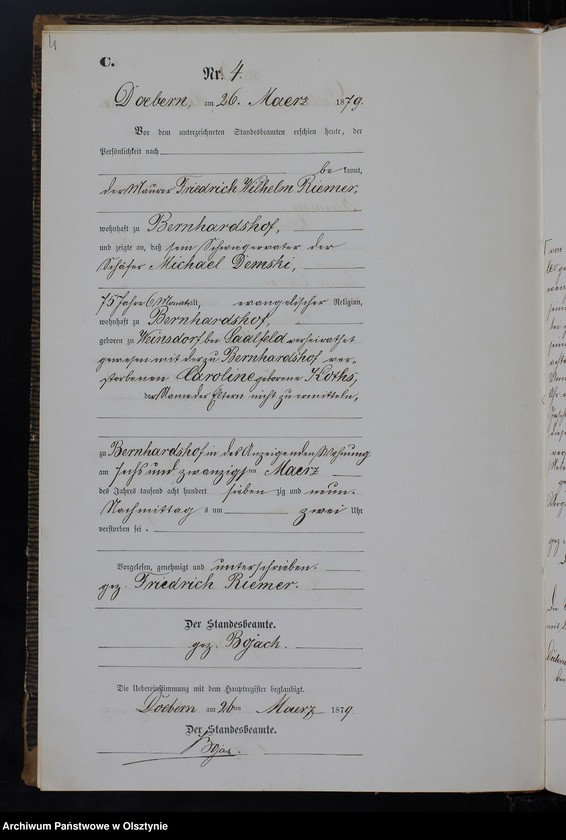 4
C.
Nr. 4.
Doebern, am 26. Maerz 1879.
Vor dem unterzeichneten Standesbeamten erschien heute, der
Persönlichkeit nach
be kannt,
der Maurer Friedrich Wilhelm Riemer,
wohnhaft zu Bernhardshof,
und zeigte an, daß sein Schwiegervater der
Schäfer Michael Demski,
75 Jahre 6 Monate alt, evangelischer Religion,
wohnhaft zu Bernhardshof,
geboren zu Weinsdorf bei Saalfeld verheirathet
gewesen mit der zu Bernhardshof ver-
storbenen Caroline geborene Koths,
der Name der Eltern nicht zu ermitteln,
zu Bernhardshof in des Anzeigenden Wohnung
am sechs und zwanzigsten Maerz
des Jahres tausend acht hundert sieben zig und neun.
Nachmittag s um zwei Uhr
verstorben sei.
Vorgelesen, genehmigt und unterschrieben.
gez. Friedrich Riemer.
Der Standesbeamte.
gez. Bojach.
Die Uebereinstimmung mit dem Hauptregister beglaubigt.
Doebern am 26ten Maerz 1879
Der Standesbeamte.
Archiwum Państwowe w Olsztynie